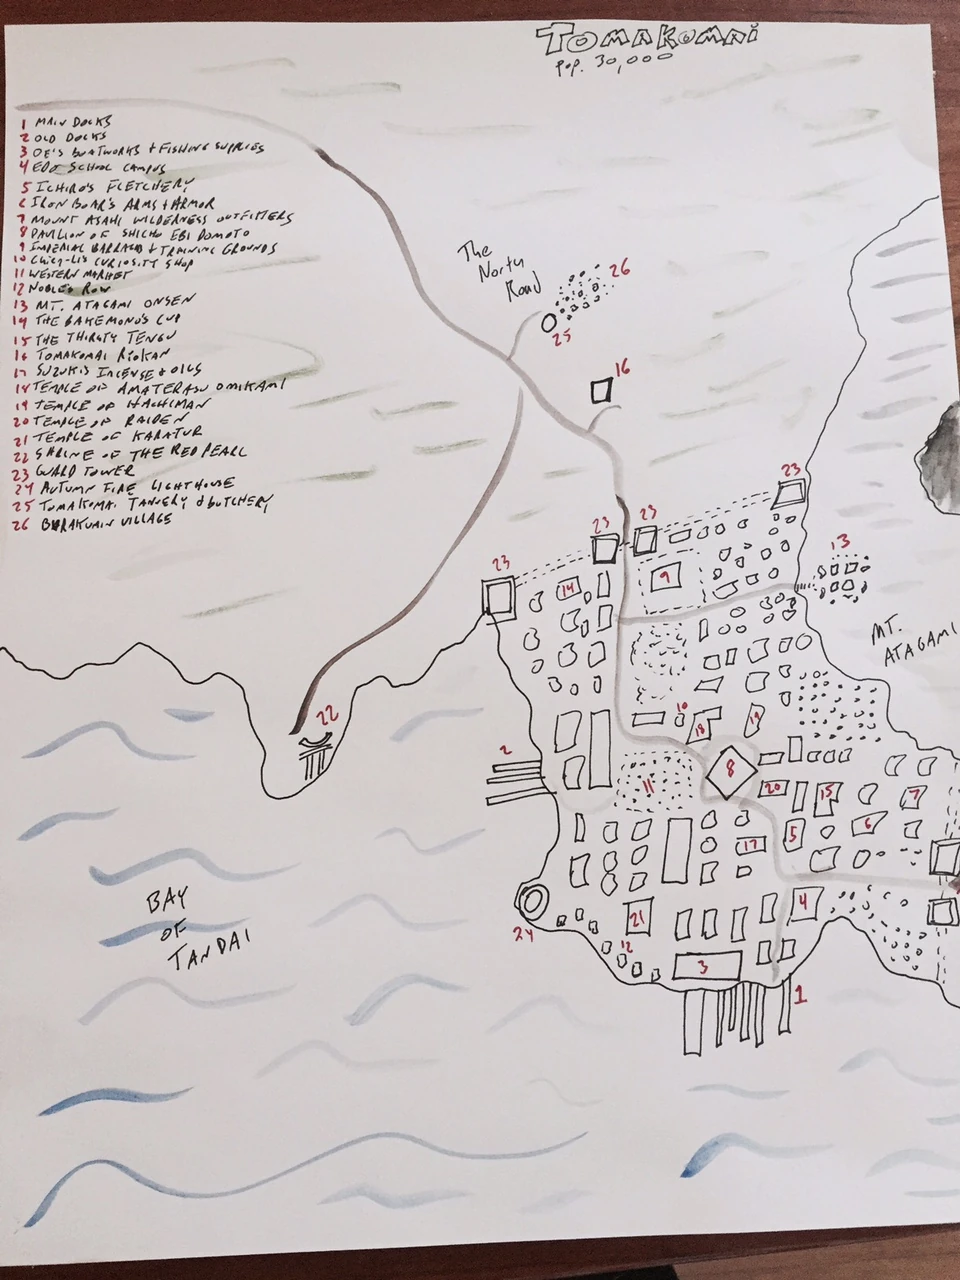 Tomakomai
Pop. 30,000
1 Main Docks
2 Old Docks
3 Oe's Boatworks + Fishing Supplies
4 Edo School Campus
5 Ichiro's Fletchery
6 Iron Boar's Arms + Armor
7 Mount Asahi Wilderness Outfitters
8 Pavilion of Shicho Ebi Domoto
9 Imperial Barracks + Training Grounds
10 Chien-Li's Curiosity Shop
11 Western Market
12 Nobles Row
13 Mt. Atagami Onsen
14 The Bakemono's Cup
15 The Thirsty Tengu
16 Tomakomai Riokan
17 Suzuki's Incense + Oils
18 Temple of Amaterasu Omikami
19 Temple of Hachiman
20 Temple of Raiden
21 Temple of Karatur
22 Shrine of the Red Pearl
23 Guard Tower
24 Autumn Fire Lighthouse
25 Tomakomai Tannery & Butchery
26 Burakumin Village
The
North
Road
26
25
16
23
23
23
23
13
14
9
Mt.
Atagami
22
10
18
19
2
8
11
20
15
7
5
6
17
4
24
21
12
3
1
Bay
of
Tandai